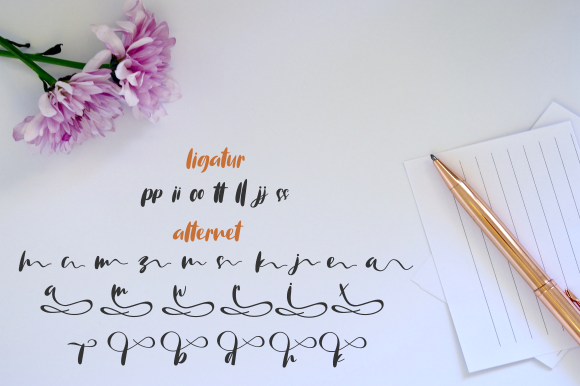 ligatur
pp ii oo tt ll jj ss
alternet
h c m z n s k j e a
a m w r i x
l b d h k